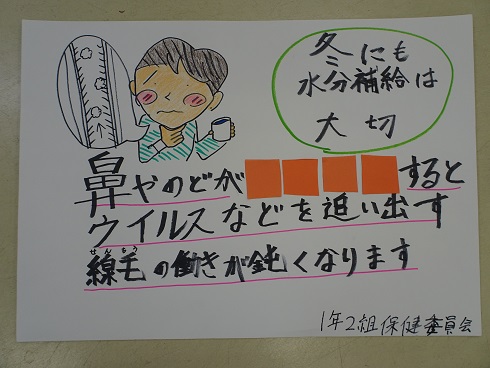 冬にも
水分補給は
大切
鼻やのどが
すると
ウイルスなどを追い出す
せんもう
線毛の働きが鈍くなります
1年2組保健委員会